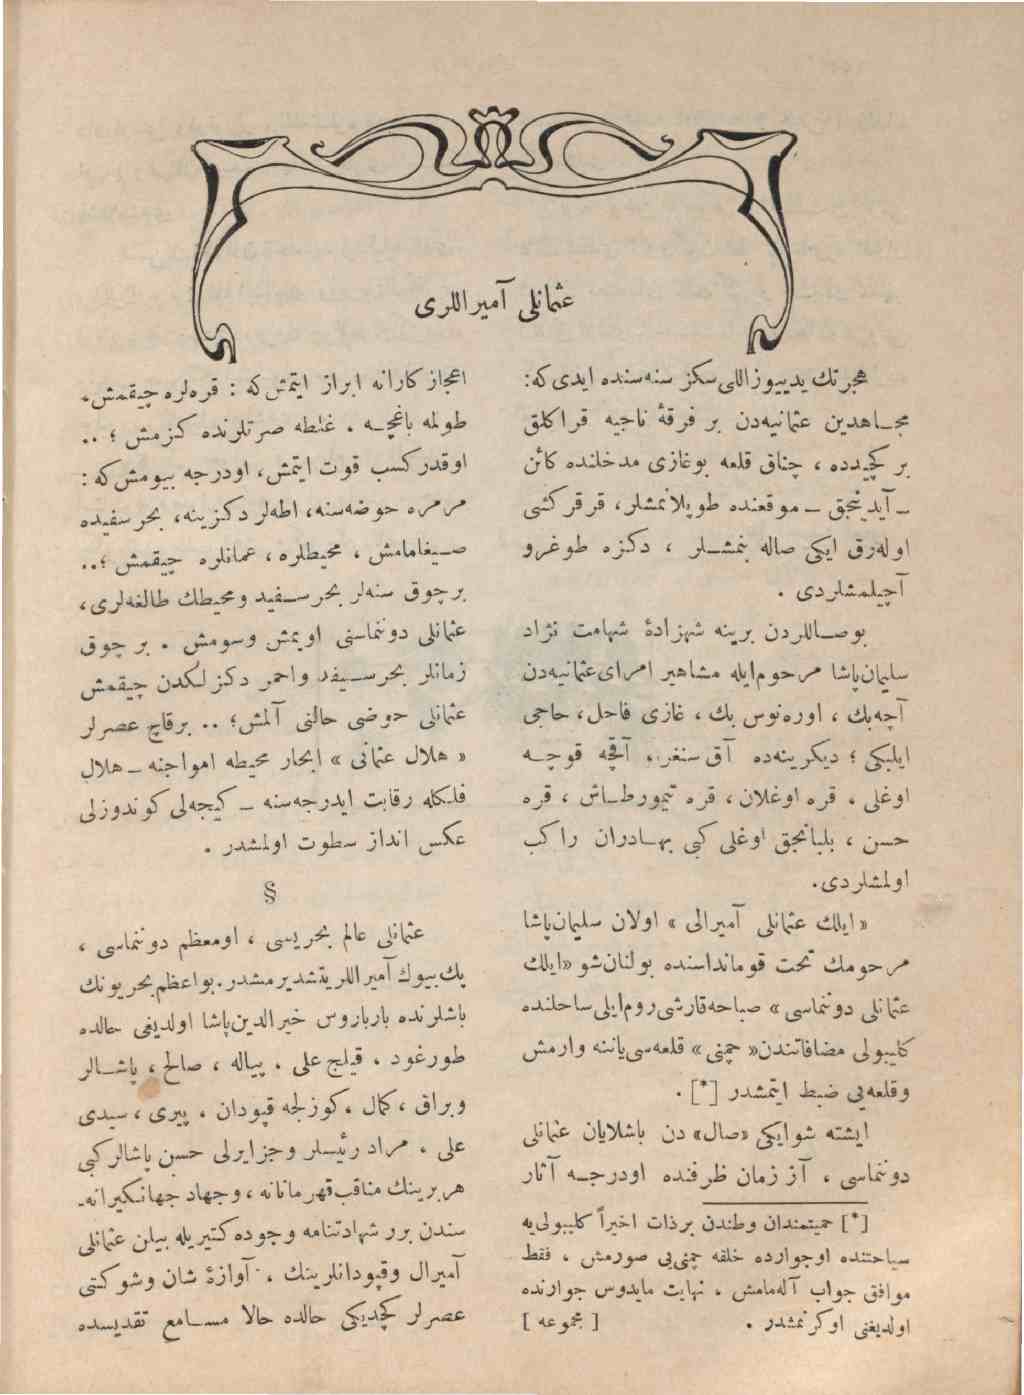 عثمانلی آمیراللری
هجرتك یدییوزاللی سكز سنه‌سنده ایدی كه:
مجـاهدین عثمانیه‌دن بر فرقهٔ ناجیه قراكلق
بر گیجه‌ده ، چناق قلعه بوغازی مدخلنده كائن
ـ آیدینجق ـ موقعنده طوپلانمشلر، قرقر كشی
اوله‌رق ایكی صاله بنمشـلر ، دكزه طوغرو
آچیلمشلردی .
بوصـاللردن برینه شهزادهٔ شهامت نژاد
سلیمان‌پاشا مرحوم‌ایله مشاهیر امرای‌عثمانیه‌دن
آجه‌بك ، اوره‌نوس بك ، غازی فاضل، حاجی
ایلبكی ؛ دیكرینه‌ده آق سنغر، آقچه قوجـه
اوغلی ، قره اوغلان، قره تیمورطـاش ، قره
حسن ، بلبانجق اوغلی كبی بهـادران راكب
اولمشلردی.
« ایلك عثمانلی آمیرالی » اولان سلیمان‌پاشا
مرحومك تحت قومانداسنده بولنان‌شو «ایلك
عثمانلی دوننماسی » صباحه‌قارشی‌روم‌ایلی‌ساحلنده
كلیبولی مضافاتندن« جمنی » قلعه‌سی‌یاننه وارمش
وقلعه‌یی ضبط ایتمشدر [*] .
ایشته شوایكی «صال» دن باشلایان عثمانلی
دوننماسی ، آز زمان ظرفنده اودرجـه آثار
[*] حمیتمندان وطندن برذات اخیراً كلیبولی‌یه
سیاحتنده اوجوارده خلقه جمنی‌یی صورمش ، فقط
موافق جواب آله‌مامش ، نهایت مایدوس جوارنده
اولدیغنی اوكرنمشدر . [ مجموعه ]
اعجازكارانه ابراز ایتمش‌كه : قره‌لره چیقمش،
طولمه باغچـه ، غلطه صرتلرنده كزمش ؛ ..
اوقدركسب قوت ایتمش، اودرجه بیومش‌كه :
مرمره حوضه‌سنه، اطه‌لر دكزینه، بحر سفیده
صـیغمامش ، محیطلره، عمانلره چیقمش ؛..
برچوق سنه‌لر بحرسـفید ومحیطك طالغه‌لری،
عثمانلی دوننماسنی اوپمش وسومش . بر چوق
زمانلر بحرسـیفد واحمر دكزلكدن چیقمش
عثمانلی حوضی حالنی آلمش؛ .. برقاچ عصرلر
« هلال عثمانی » ابحار محیطه امواجنه ـ هلال
فلكله رقابت ایدرجه‌سنه ـ كیجه‌لی كوندوزلی
عكس انداز سطوت اولمشدر .
§
عثمانلی عالم بحریسی ، اومعظم دوننماسی ،
پك‌بیوك آمیراللریتشدیرمشدر.بواعظم‌بحریونك
باشلرنده بارباروس خیرالدین‌پاشا اولدیغی حالده
طورغود ، قیلیج علی ، پیاله ، صالح ، پاشـالر
وبراق ، كمال ،كوزلجه قپودان ، پیری ، سیدی
علی ، مراد رئیسلر وجزایرلی حسن پاشالركبی
هربرینك مناقب‌قهرمانانه ، وجهاد جهانكیرانه‌ـ
سندن برر شهادتنامه وجوده كتیریله بیلن عثمانلی
آمیرال وقپودانلرینك ، آوازهٔ شان وشوكتی
عصرلر كچدیكی حالده حالا مسـامع تقدیسده